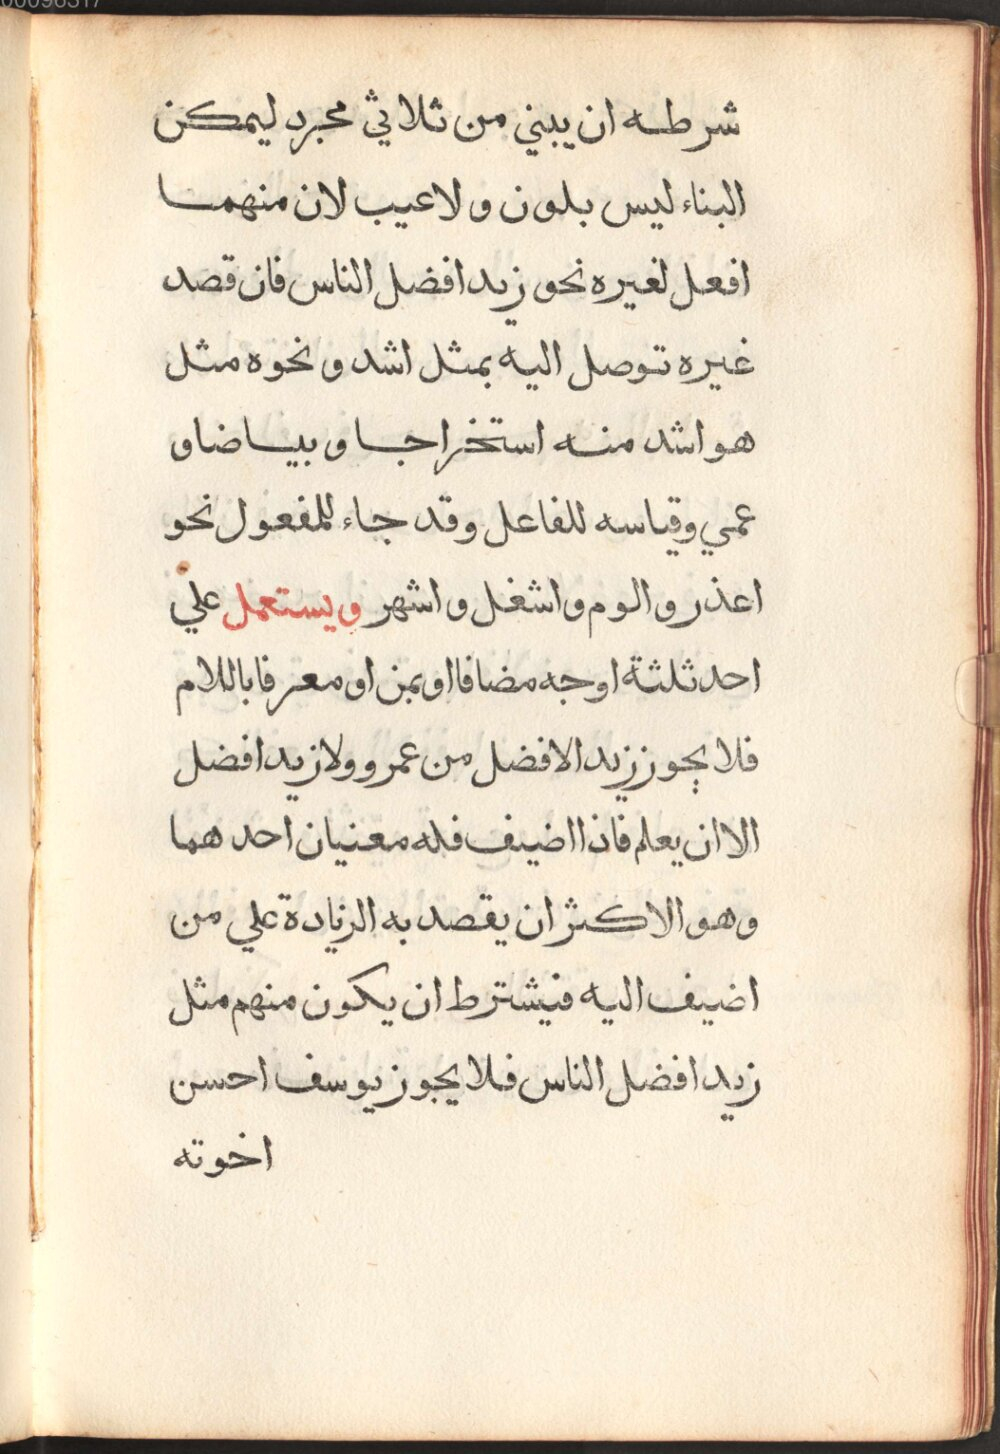 00096317
شرطه ان يبني من ثلاثي مجرد ليمكن
البناء ليس بلون ولا عيب لان منهما
افعل لغيره نحو زيد افضل الناس فان قصد
غيره توصل اليه بمثل اشد ونحوه مثل
هو اشد منه استخراجا وبياضا و
عمي وقياسه للفاعل وقد جاء للمفعول نحو
اعذر والوم واشغل واشهر ويستعمل علي
احد ثلثة اوجه مضافا او بمن او معرفا باللام
فلا يجوز زيد الافضل من عمرو ولا زيد افضل
الا ان يعلم فاذا اضيف فله معنيان احدهما
وهو الاكثر ان يقصد به الزيادة علي من
اضيف اليه فيشترط ان يكون منهم مثل
زيد افضل الناس فلا يجوز يوسف احسن
اخوته